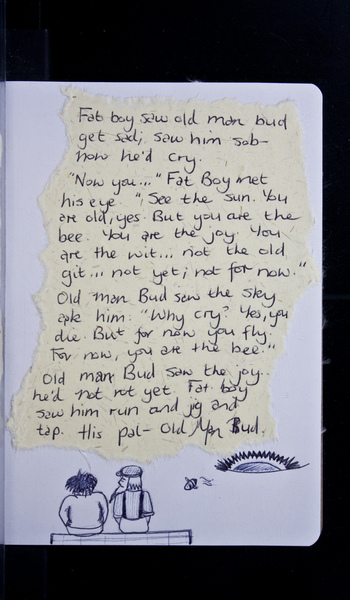 Fat boy saw old man bud
get sad; saw him sob-
how he'd cry.
"Now you..." Fat Boy met
his eye. "See the sun. You
are old, yes. But you are the
bee. You are the joy. You
are the wit... not the old
git... not yet; not for now."
Old man Bud saw the sky
ask him: "Why cry? Yes, you
die. But for now you fly.
For now, you are the bee."
Old man Bud saw the joy.
he'd not rot yet. Fat boy
saw him run and jig and
tap. His pal- Old Man Bud.